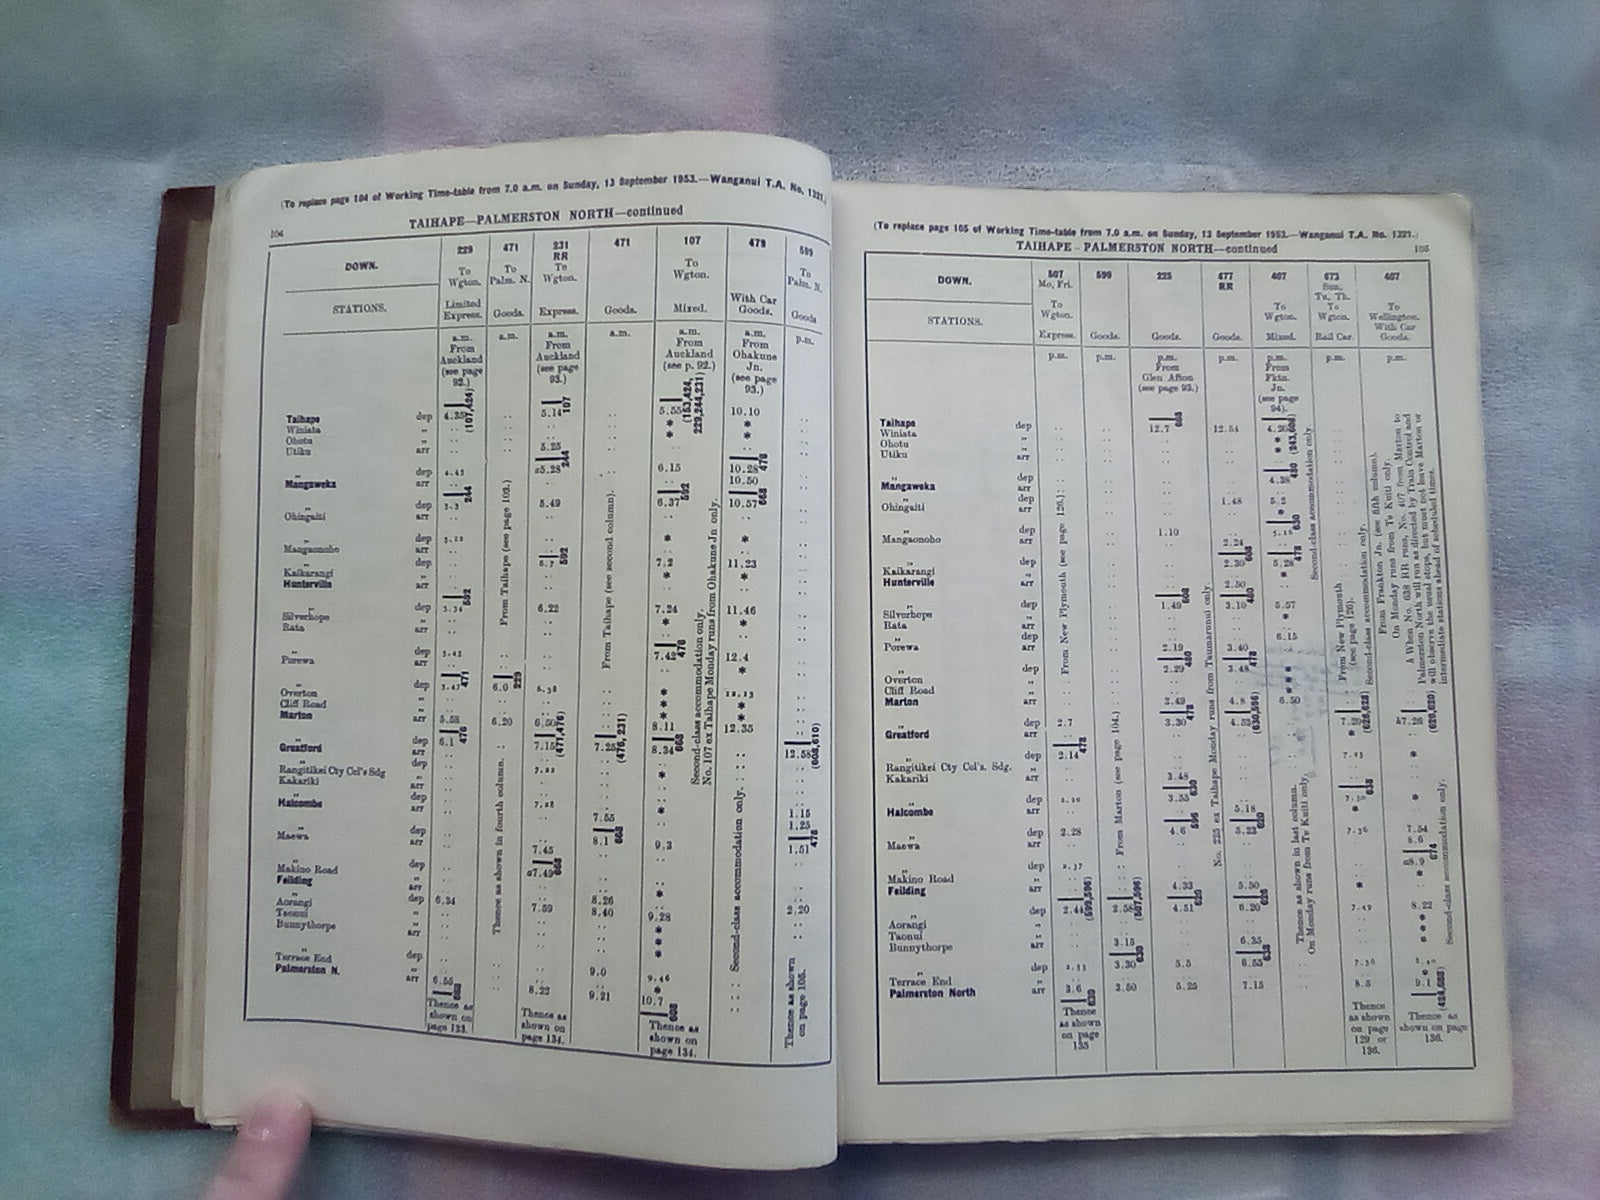 (To replace page 104 of Working Time-table from 7.0 a.m. on Sunday, 13 September 1953.—Wanganui T.A. No. 1321.)
104
TAIHAPE—PALMERSTON NORTH—continued
DOWN. 229 471 231 RR 471 107 479 599
To Wgton. To Palm. N. To Wgton. To Wgton. To Palm. N.
STATIONS. Limited Express. Goods. Express. Goods. Mixed. With Car Goods. Goods
a.m. a.m. a.m. a.m. a.m. a.m. p.m.
From Auckland (see page 92.) From Auckland (see page 93.) From Auckland (see p. 92.) From Ohakune Jn. (see page 93.)
Taihape dep 4.35 (107,424) 5.14 107 5.55 (153,424, 229,244,231) 10.10
Winiata „
Ohotu „
Utiku arr 5.25 244 10.28 478
„ dep 4.42 a5.28 6.15 10.50
Mangaweka arr 244 592 10.57 668
„ dep 5.49 6.37
Ohingaiti arr
„ dep
Mangaonoho arr 592
„ dep 7.2 11.23
Kaikarangi „
Hunterville arr 592
„ dep 5.34 6.22 7.24 11.46
Silverhope „
Rata arr
„ dep 7.42 478 12.4
Porewa arr
„ dep 471 6.0 229
Overton „
Cliff Road „
Marton arr 5.55 6.20 6.50 8.11 12.35
„ dep 6.1 478 7.15 (471,476) 7.25 (476, 231) 8.34 668 12.58 (608,610)
Greatford arr
„ dep
Rangitikei Cty Col's Sdg „
Kakariki arr
„ dep 7.55 1.15
Halcombe arr 1.25
„ dep 8.1 668 9.3 1.51 478
Maewa arr 7.45
„ dep a7.49 668
Makino Road „
Feilding arr 8.26
„ dep 6.34 7.59 8.40 9.28 2.20
Aorangi „
Taonui „
Bunnythorpe arr
„ dep 9.0 9.46
Terrace End „
Palmerston N. arr 6.55 668 8.22 9.21 10.7 608
From Taihape (see page 103.)
Thence as shown in fourth column.
From Taihape (see second column).
Second-class accommodation only.
No. 107 ex Taihape Monday runs from Ohakune Jn only.
Second-class accommodation only.
Thence as shown on page 133.
Thence as shown on page 134.
Thence as shown on page 134.
Thence as shown on page 105.
(To replace page 105 of Working Time-table from 7.0 a.m. on Sunday, 13 September 1953.—Wanganui T.A. No. 1321.)
TAIHAPE—PALMERSTON NORTH—continued
105
DOWN. 507 Mo, Fri. 599 225 477 RR 407 673 Sun, Tu, Th. 407
To Wgton. To Wgton. To Wgton. To Wellington. With Car
STATIONS. Express. Goods. Goods. Goods. Mixed. Rail Car. Goods.
p.m. p.m. p.m. p.m. p.m. p.m. p.m.
From Glen Afton (see page 93.) From Fktn. Jn. (see page 94).
Taihape dep 12.7 12.54 4.20
Winiata „
Ohotu „
Utiku arr
„ dep 4.38 430
Mangaweka arr
„ dep 1.48
Ohingaiti arr 630
„ dep 1.10
Mangaonoho arr
„ dep 2.30 608 5.28 478
Kaikarangi „
Hunterville arr 608 2.50 480
„ dep 1.49 3.10 5.57
Silverhope „
Rata arr 6.15
„ dep 2.19 3.40
Porewa arr 2.29 480 3.48 478
„ dep
Overton „
Cliff Road „
Marton arr 2.49 6.50
„ dep 2.7 3.30 478 4.35 (630,596) (626,628) (629,620)
Greatford arr
„ dep 2.14 478
Rangitikei Cty Col's. Sdg. „
Kakariki arr 3.48
„ dep 3.55 630 635
Halcombe arr 5.18
„ dep 2.28 4.6 596 5.23 620 7.54
Maewa arr 8.6
„ dep 674
Makino Road „
Feilding arr 4.33 5.50
„ dep 2.44 (599,596) 2.58 (507,596) 4.51 620 6.20 8.22
Aorangi „
Taonui „
Bunnythorpe arr 3.15 6.35
„ dep 3.30 630 5.5 6.55
Terrace End „
Palmerston North arr 3.6 630 3.50 5.25 7.15 8.5 9.1 (424,628)
From New Plymouth (see page 126.)
From Marton (see page 104.)
No. 225 ex Taihape Monday runs from Taumarunui only.
Thence as shown in last column.
On Monday runs from Te Kuiti only.
Second-class accommodation only
From New Plymouth (see page 126).
Second-class accommodation only.
From Frankton Jn. (see fifth column).
On Monday runs from Te Kuiti only.
A When No. 638 RR runs, No. 407 from Marton to
Palmerston North will run as directed by Train Control and
will observe the usual stops, but must not leave Marton or
intermediate stations ahead of scheduled times.
Second-class accommodation only.
Thence as shown on page 135
Thence as shown on page 129 or 136.
Thence as shown on page 136.